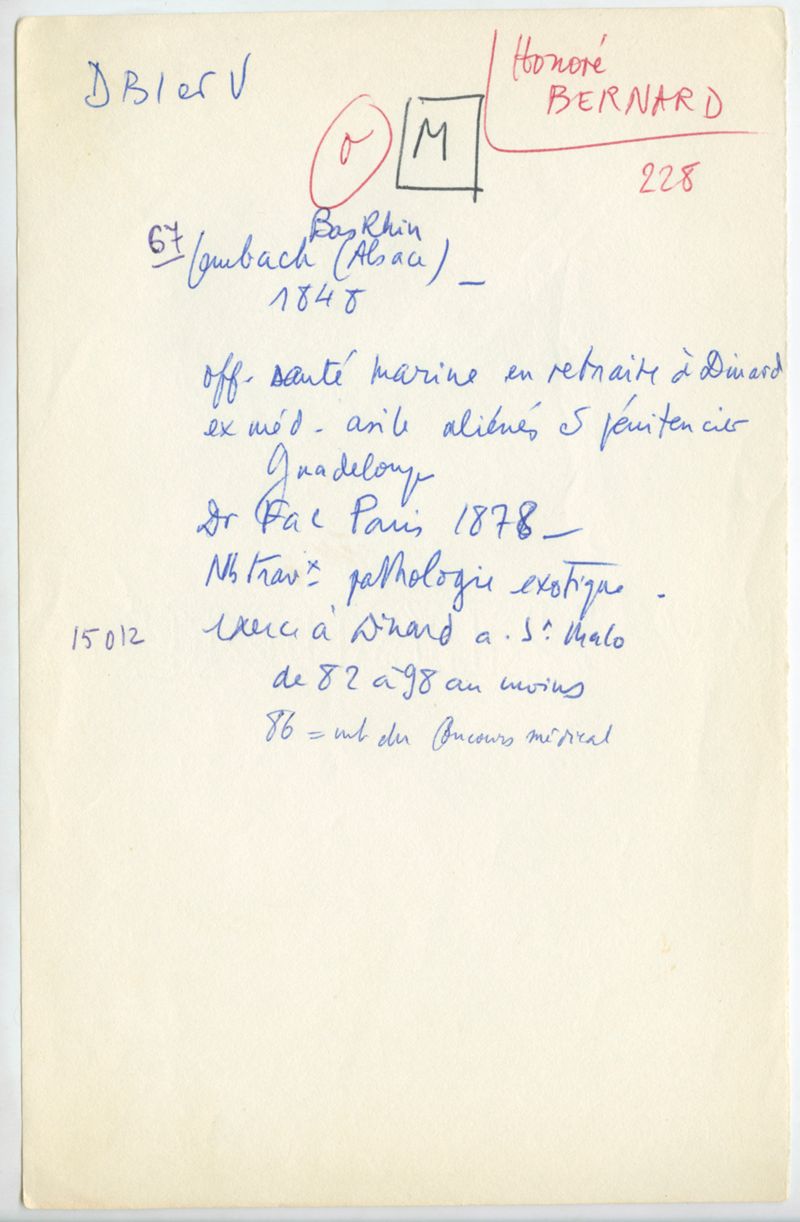 DBI er V
Honoré
BERNARD
σ
M
228
67
Bas Rhin
Lembach (Alsace) _
1848
off. santé marine en retraite à Dinard
ex méd. asile aliénés & pénitencier
Guadeloupe
Dr Fac Paris 1878 _
Nb travx pathologie exotique.
15012
exerce à Dinard a. St Malo
de 82 à 98 au moins
86 = mb du Concours médical